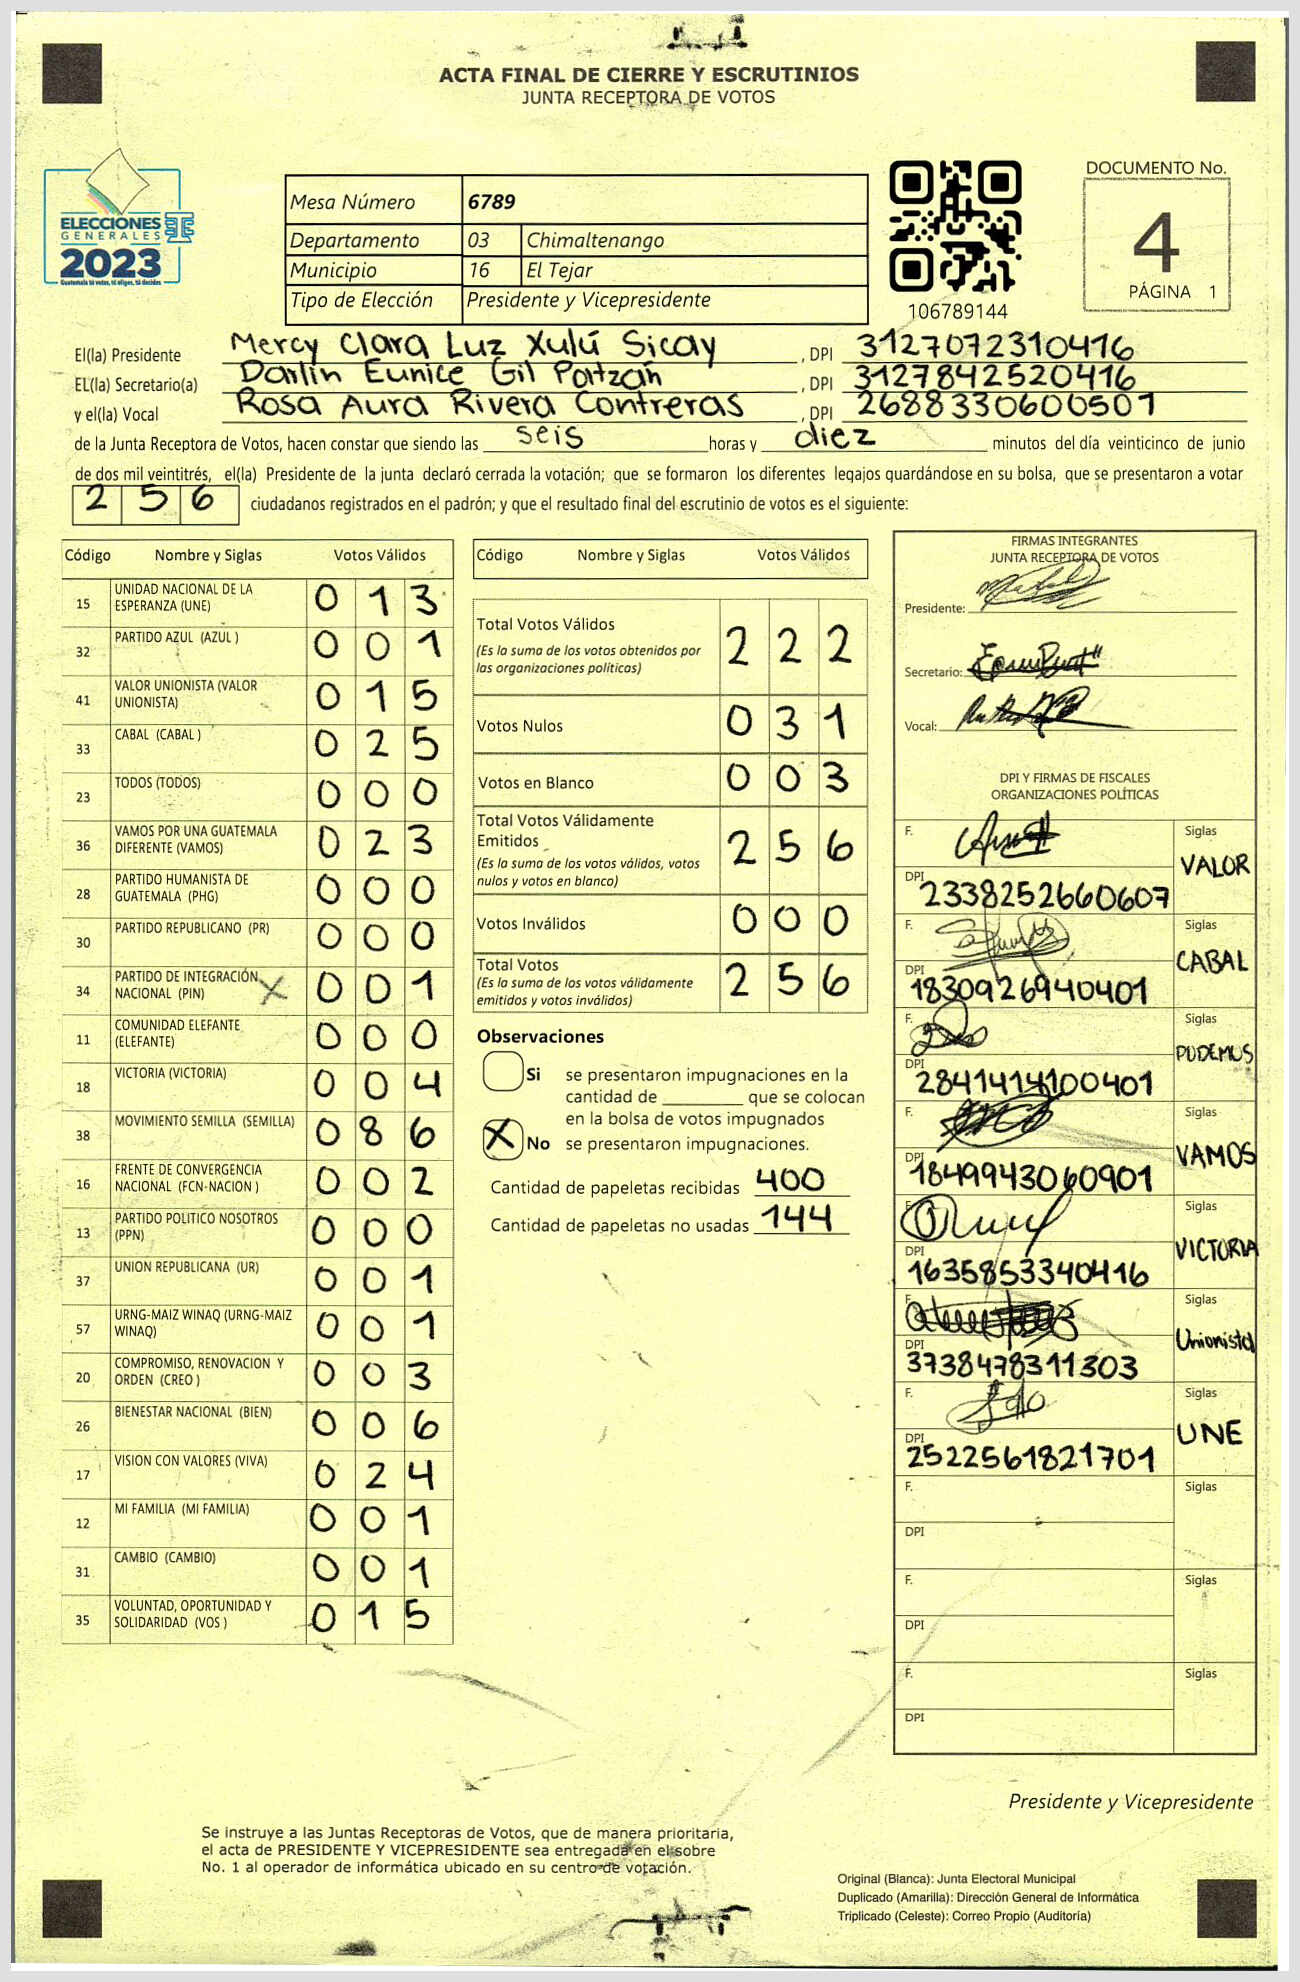 ACTA FINAL DE CIERRE Y ESCRUTINIOS
JUNTA RECEPTORA DE VOTOS
ELECCIONES
GENERALES
2023
Guatemala tú votas, tú eliges, tú decides
Mesa Número 6789
Departamento 03 Chimaltenango
Municipio 16 El Tejar
Tipo de Elección Presidente y Vicepresidente
106789144
DOCUMENTO No.
4
PÁGINA 1
El(la) Presidente Mercy Clara Luz Xulú Sicay , DPI 3127072310416
EL(la) Secretario(a) Darlin Eunice Gil Patzán , DPI 3127842520416
y el(la) Vocal Rosa Aura Rivera Contreras , DPI 2688330600501
de la Junta Receptora de Votos, hacen constar que siendo las seis horas y diez minutos del día veinticinco de junio
de dos mil veintitrés, el(la) Presidente de la junta declaró cerrada la votación; que se formaron los diferentes legajos quardándose en su bolsa, que se presentaron a votar
2 5 6 ciudadanos registrados en el padrón; y que el resultado final del escrutinio de votos es el siguiente:
Código Nombre y Siglas Votos Válidos
15 UNIDAD NACIONAL DE LA ESPERANZA (UNE) 0 1 3
32 PARTIDO AZUL (AZUL ) 0 0 1
41 VALOR UNIONISTA (VALOR UNIONISTA) 0 1 5
33 CABAL (CABAL ) 0 2 5
23 TODOS (TODOS) 0 0 0
36 VAMOS POR UNA GUATEMALA DIFERENTE (VAMOS) 0 2 3
28 PARTIDO HUMANISTA DE GUATEMALA (PHG) 0 0 0
30 PARTIDO REPUBLICANO (PR) 0 0 0
34 PARTIDO DE INTEGRACIÓN NACIONAL (PIN) X 0 0 1
11 COMUNIDAD ELEFANTE (ELEFANTE) 0 0 0
18 VICTORIA (VICTORIA) 0 0 4
38 MOVIMIENTO SEMILLA (SEMILLA) 0 8 6
16 FRENTE DE CONVERGENCIA NACIONAL (FCN-NACION ) 0 0 2
13 PARTIDO POLITICO NOSOTROS (PPN) 0 0 0
37 UNION REPUBLICANA (UR) 0 0 1
57 URNG-MAIZ WINAQ (URNG-MAIZ WINAQ) 0 0 1
20 COMPROMISO, RENOVACION Y ORDEN (CREO ) 0 0 3
26 BIENESTAR NACIONAL (BIEN) 0 0 6
17 VISION CON VALORES (VIVA) 0 2 4
12 MI FAMILIA (MI FAMILIA) 0 0 1
31 CAMBIO (CAMBIO) 0 0 1
35 VOLUNTAD, OPORTUNIDAD Y SOLIDARIDAD (VOS ) 0 1 5
Código Nombre y Siglas Votos Válidos
Total Votos Válidos 2 2 2
(Es la suma de los votos obtenidos por
las organizaciones políticas)
Votos Nulos 0 3 1
Votos en Blanco 0 0 3
Total Votos Válidamente
Emitidos 2 5 6
(Es la suma de los votos válidos, votos
nulos y votos en blanco)
Votos Inválidos 0 0 0
Total Votos 2 5 6
(Es la suma de los votos válidamente
emitidos y votos inválidos)
Observaciones
Si se presentaron impugnaciones en la
cantidad de ________ que se colocan
en la bolsa de votos impugnados
X No se presentaron impugnaciones.
Cantidad de papeletas recibidas 400
Cantidad de papeletas no usadas 144
FIRMAS INTEGRANTES
JUNTA RECEPTORA DE VOTOS
Presidente:
Secretario:
Vocal:
DPI Y FIRMAS DE FISCALES
ORGANIZACIONES POLÍTICAS
F. Siglas VALOR
DPI 2338252660607
F. Siglas CABAL
DPI 1830926940401
F. Siglas PODEMOS
DPI 2841414100401
F. Siglas VAMOS
DPI 1849943060901
F. Siglas VICTORIA
DPI 1635853340416
F. Siglas Unionista
DPI 3738478311303
F. Siglas UNE
DPI 2522561821701
F. Siglas
DPI
F. Siglas
DPI
F. Siglas
DPI
Presidente y Vicepresidente
Se instruye a las Juntas Receptoras de Votos, que de manera prioritaria,
el acta de PRESIDENTE Y VICEPRESIDENTE sea entregada en el sobre
No. 1 al operador de informática ubicado en su centro de votación.
Original (Blanca): Junta Electoral Municipal
Duplicado (Amarilla): Dirección General de Informática
Triplicado (Celeste): Correo Propio (Auditoría)